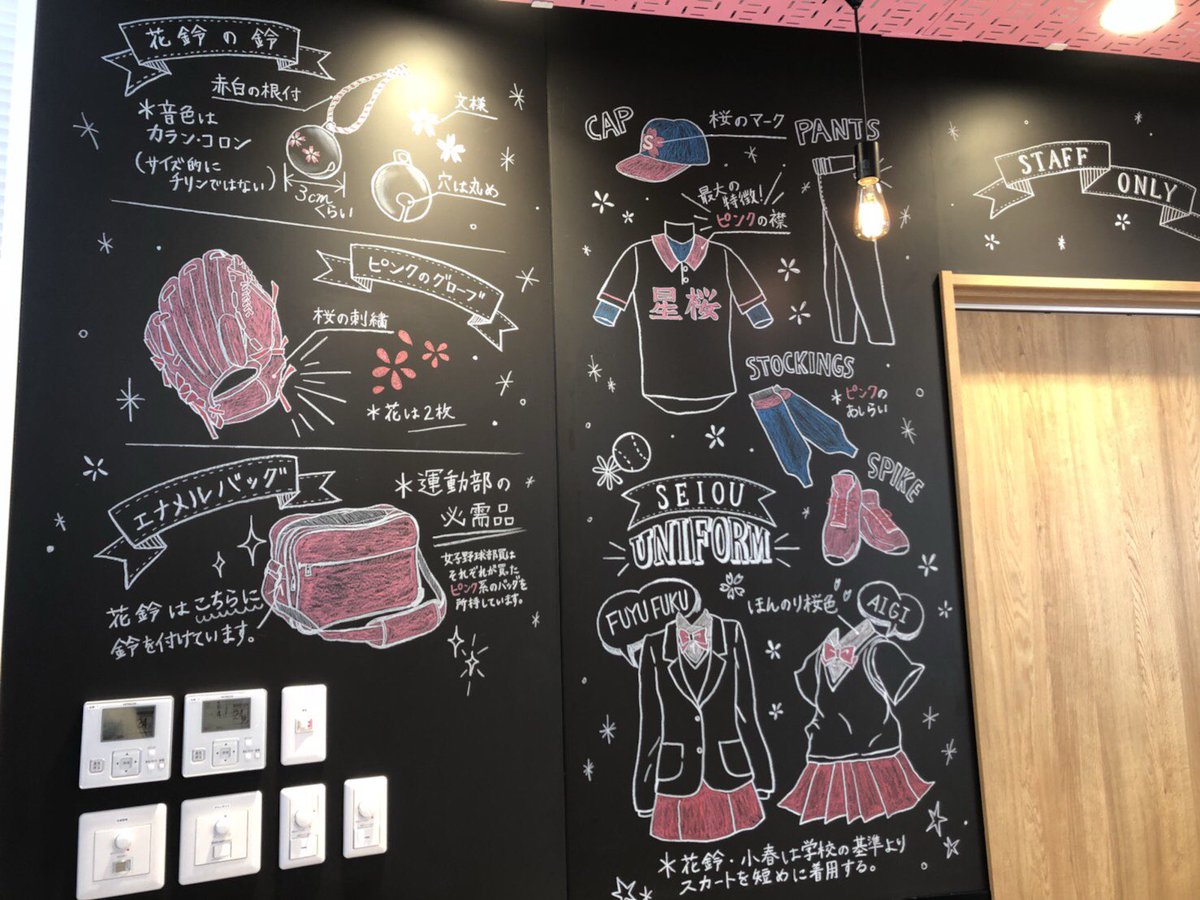 花鈴の鈴
赤白の根付
文様
*音色は
カラン・コロン
(サイズ的に
チリンではない)
3cm
くらい
穴は丸め
ピンクのグローブ
桜の刺繍
*花は2枚
エナメルバッグ
*運動部の
必需品
女子野球部員は
それぞれが買った
ピンク系のバッグを
所持しています。
花鈴はこちらに
鈴を付けています。
CAP
桜のマーク
S
PANTS
最大の
特徴!
ピンクの襟
星桜
STOCKINGS
*ピンクの
あしらい
SPIKE
SEIOU
UNIFORM
FUYU FUKU
ほんのり桜色
AIGI
*花鈴・小春は学校の基準より
スカートを短めに着用する。
STAFF
ONLY